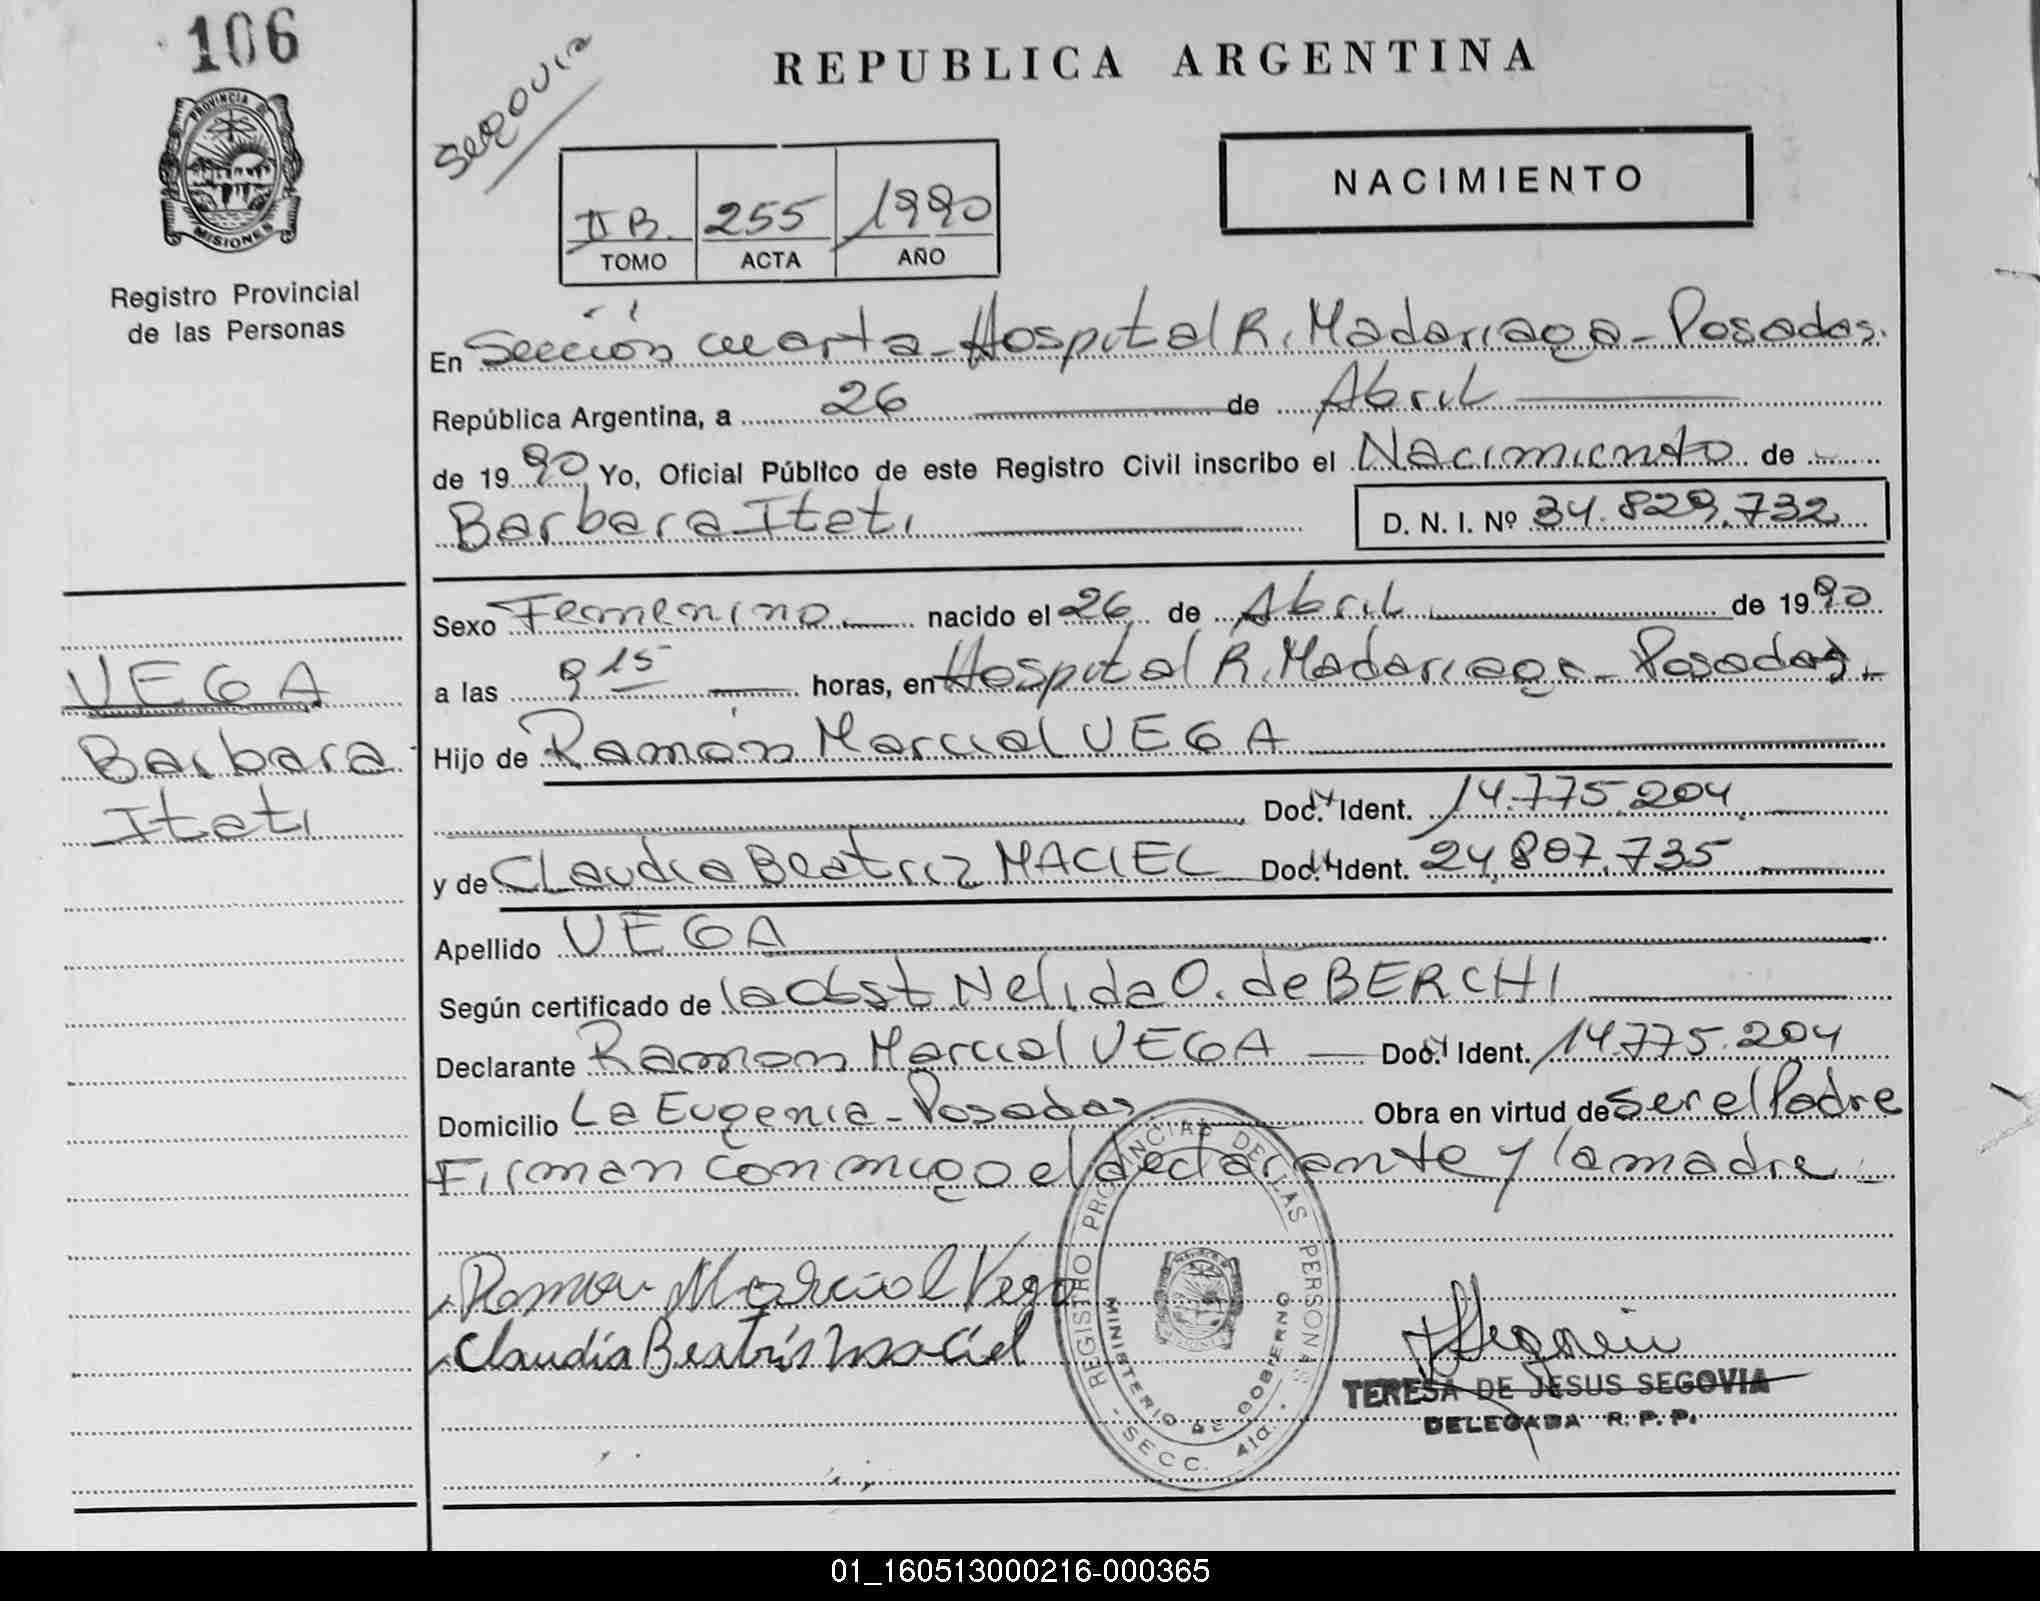 106
PROVINCIA DE
MISIONES
Registro Provincial
de las Personas
Segovia
REPUBLICA ARGENTINA
NACIMIENTO
II B. 255 1990
TOMO ACTA AÑO
En Sección cuarta - Hospital R. Madariaga - Posadas.
República Argentina, a 26 de Abril
de 1990 Yo, Oficial Público de este Registro Civil inscribo el Nacimiento de
Barbara Itati D. N. I. Nº 34.829.732
Sexo Femenino nacido el 26 de Abril de 1990
a las 9 15 horas, en Hospital R. Madariaga - Posadas.
VEGA
Barbara
Itati
Hijo de Ramón Marcial VEGA
Doc. Ident. 14.775.204
y de Claudia Beatriz MACIEL Doc. Ident. 24.807.735
Apellido VEGA
Según certificado de la Obst Nelida O. de BERCHI
Declarante Ramon Marcial VEGA Doc. Ident. 14.775.204
Domicilio La Eugenia - Posadas Obra en virtud de ser el Padre
Firman conmigo el declarante y la madre
Ramon Marcial Vega
Claudia Beatris Maciel
REGISTRO PROVINCIAL DE LAS PERSONAS
MINISTERIO DE GOBIERNO
- SECC. 4ta. -
Segovia
TERESA DE JESUS SEGOVIA
DELEGADA R. P. P.
01_160513000216-000365